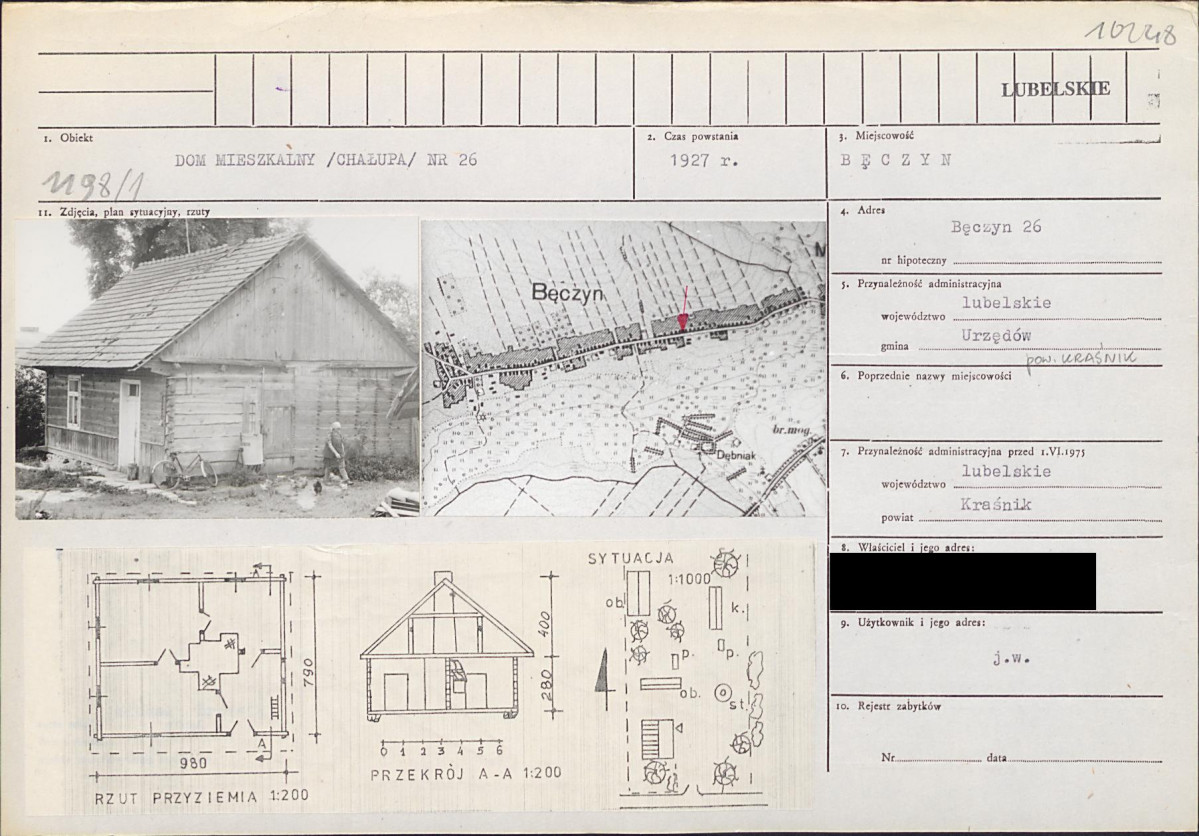 10248
LUBELSKIE
1. Obiekt
DOM MIESZKALNY /CHAŁUPA/ NR 26
1198/1
2. Czas powstania
1927 r.
3. Miejscowość
BĘCZYN
11. Zdjęcia, plan sytuacyjny, rzuty
Bęczyn
M
br. mog.
Dębniak
4. Adres
Bęczyn 26
nr hipoteczny
5. Przynależność administracyjna
województwo lubelskie
gmina Urzędów
pow. KRAŚNIK
6. Poprzednie nazwy miejscowości
7. Przynależność administracyjna przed 1.VI.1975
województwo lubelskie
powiat Kraśnik
8. Właściciel i jego adres:
9. Użytkownik i jego adres:
j.w.
10. Rejestr zabytków
Nr data
A
790
A
980
RZUT PRZYZIEMIA 1:200
400
280
0 1 2 3 4 5 6
PRZEKRÓJ A-A 1:200
SYTUACJA
1:1000
ob.
k.
p.
p.
ob.
st.